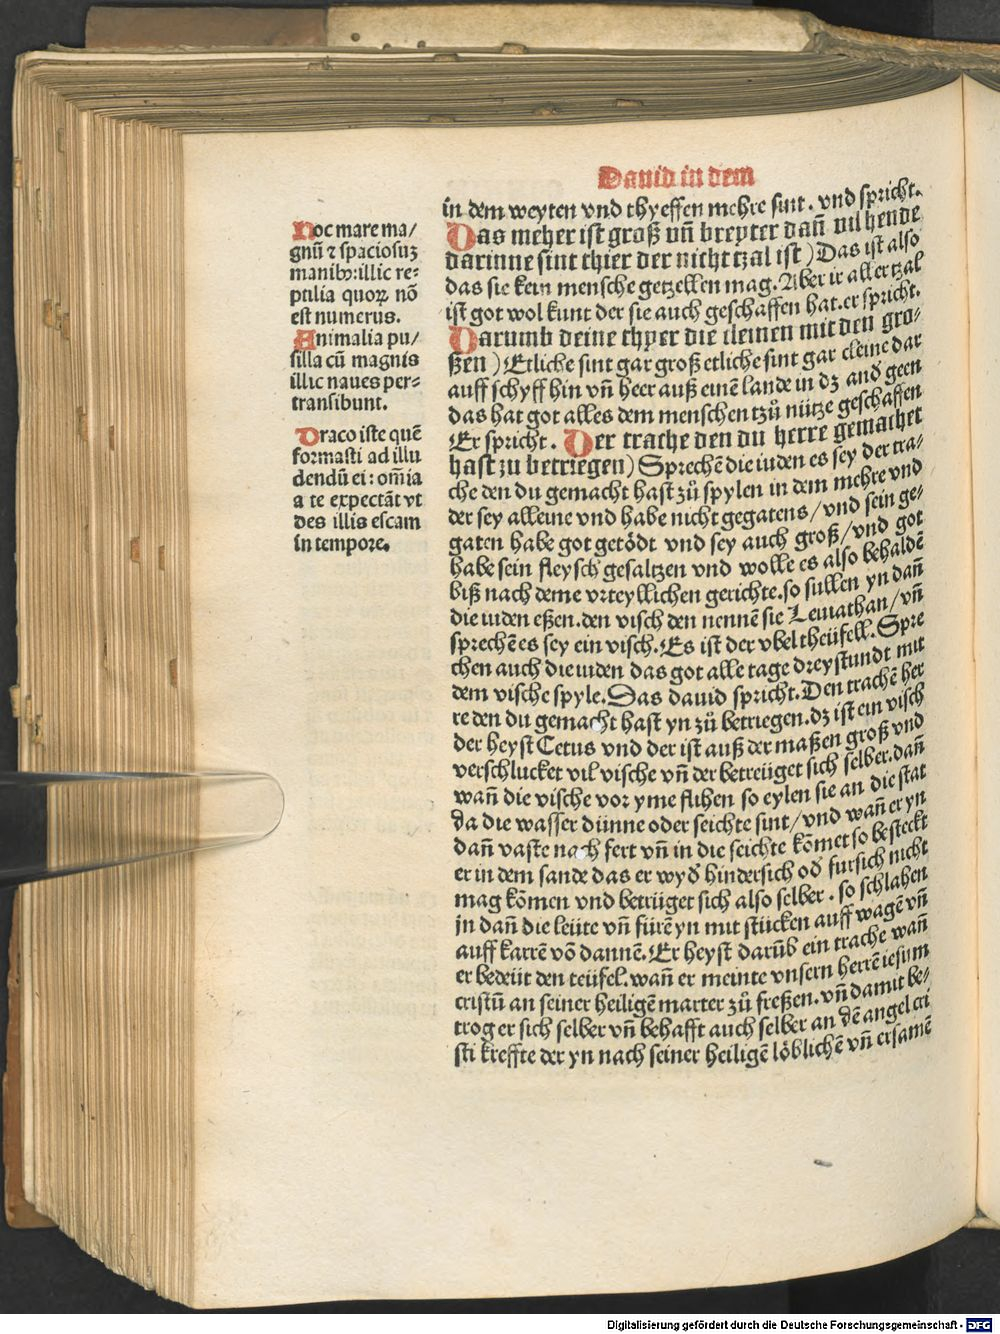 Dauid in dem
Hoc mare ma/
gnū ⁊ spaciosuʒ
manibꝰ: illic re⸗
ptilia quoꝝ nō
est numerus.
Animalia pu/
silla cū magnis
illic naues per⸗
transibunt.
Draco iste quē
formasti ad illu
dendū ei: om̄ia
a te expectāt vt
des illis escam
in tempore.
in dem weyten vnd thyeffen mehre sint. vnd spricht.
Das meher ist groß vn̄ breyter dan̄ vil hende
darinne sint thier der nicht tzal ist) Das ist also
das sie kein mensche getzellen mag. Aber ir aller tzal
ist got wol kunt der sie auch geschaffen hat. er spricht.
Darumb deine thyer die cleinen mit den gro⸗
ßen) Etliche sint gar groß etliche sint gar cleine dar
auff schyff hin vn̄ heer auß einē lande in dʒ and̕ geen
das hat got alles dem menschen tzů nütze geschaffen
Er spricht. Der trache den du herre gemachet
hast zu betriegen) Sprechē die iuden es sey der tra⸗
che den du gemacht hast zů spylen in dem mehre vnd
der sey alleine vnd habe nicht gegatens/ vnd sein ge⸗
gaten habe got getödt vnd sey auch groß/ vnd got
habe sein fleysch gesaltzen vnd wolle es also behaldē
biß nach deme vrteyllichen gerichte. so sullen yn dan̄
die iuden eßen. den visch den nennē sie Leuiathan/ vn̄
sprechē es sey ein visch. Es ist der vbel theüfell. Spre
chen auch die iuden das got alle tage drey stundt mit
dem vische spyle. Das dauid spricht. Den trachē her
re den du gemacht hast yn zů betriegen. dʒ ist ein visch
der heyst Cetus vnd der ist auß der maßen groß vnd
verschlucket vil vische vn̄ der betreüget sich selber. dan̄
wan̄ die vische vor yme flihen so eylen sie an die stat
da die wasser dünne oder seichte sint/ vnd wan̄ er yn
dan̄ vaste nach fert vn̄ in die seichte kōmet so besteckt
er in dem sande das er wyd̕ hindersich od̕ fursich nicht
mag kōmen vnd betrüget sich also selber. so schlahen
jn dan̄ die leüte vn̄ fürē yn mit stücken auff wagē vn̄
auff karrē vō dannē. Er heyst darūb ein trache wan̄
er bedeüt den teüfel. wan̄ er meinte vnsern herrē iesum
cristū an seiner heiligē marter zů freßen. vn̄ damit be⸗
trog er sich selber vn̄ behafft auch selber an dē angel cri
sti kreffte der yn nach seiner heiligē löblichē vn̄ ersamē
Digitalisierung gefördert durch die Deutsche Forschungsgemeinschaft - DFG